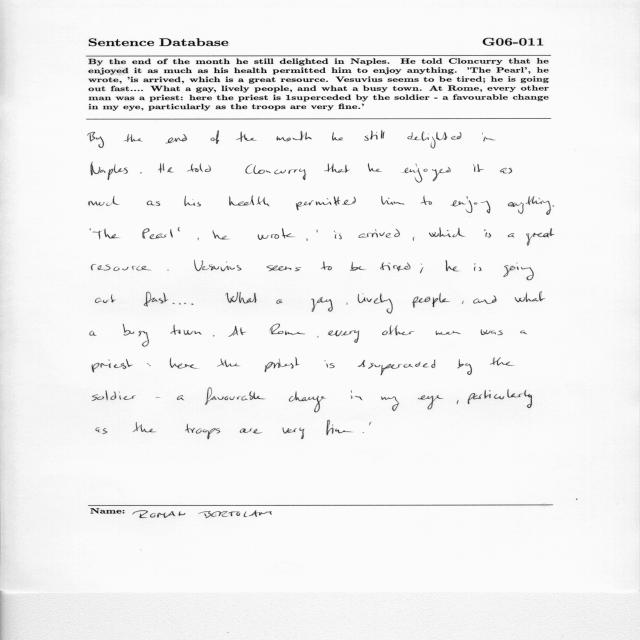 Sentence Database G06-011
By the end of the month he still delighted in Naples. He told Cloncurry that he
enjoyed it as much as his health permitted him to enjoy anything. 'The Pearl', he
wrote, 'is arrived, which is a great resource. Vesuvius seems to be tired; he is going
out fast.... What a gay, lively people, and what a busy town. At Rome, every other
man was a priest: here the priest is 1superceded by the soldier - a favourable change
in my eye, particularly as the troops are very fine.'
By the end of the month he still delighted in
Naples. He told Cloncurry that he enjoyed it as
much as his health permitted him to enjoy anything.
'The Pearl', he wrote, 'is arrived, which is a great
resource. Vesuvius seems to be tired; he is going
out fast.... What a gay, lively people, and what
a busy town. At Rome, every other man was a
priest: here the priest is 1superceded by the
soldier - a favourable change in my eye, particularly
as the troops are very fine.'
Name: ROMAN BERTOLAMI